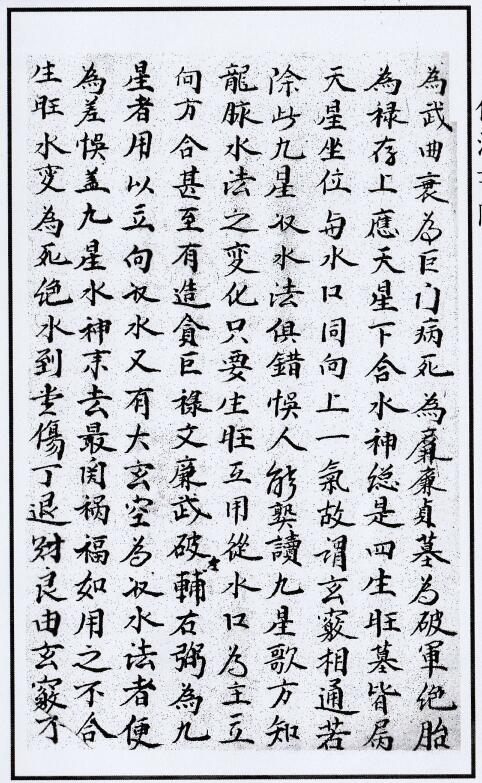 為武曲衰為巨门病死為廉廉貞墓為破軍绝胎
為禄存上應天星下合水神総是四生旺墓皆屙
天星坐位与水口同向上一氣故谓玄竅相通若
除此九星収水法俱錯悞人能熟讀九星歌方知
龍脉水法之变化只要生旺互用從水口為主立
向方合甚至有造貪巨禄文廉武破輔右弼為九
星者用以立向収水又有大玄空為収水法者便
為差悞盖九星水神来去最関禍福如用之不合
生旺水变為死绝水到堂傷丁退财良由玄竅不